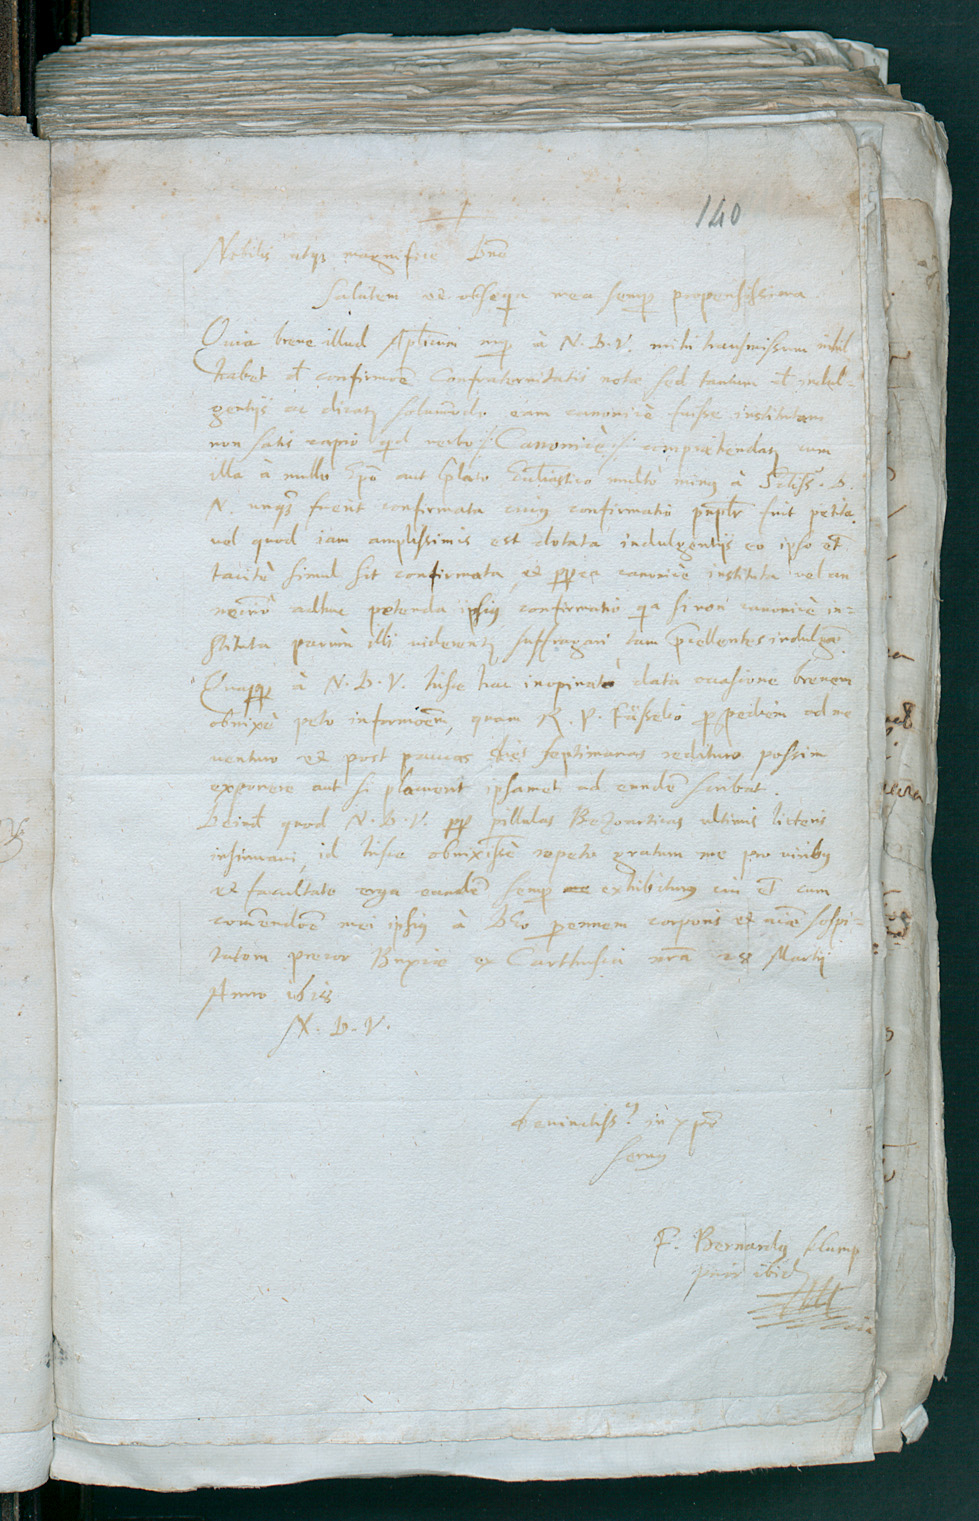 140
Nobilis atq3 magnifice Dnē
Salutem et obseqa mea semp propensissima
Quia breve illud Aplicum nup à N. D. V. mihi transmissum nihil
habet d confirmōe Confraternitatis notæ sed tantum d indul-
gentijs ac dicatz solummodo eam canonicè fuisse institutam
non satis capio qd verbo ∴ Canonicè ∴ comprætendatz cum
illa à nullo Epō aut Plato Eccliastico multò minq à Sctiss. D.
N. unq3 fuerit confirmata cuiq confirmatio pnplr fuit petita.
vel quod iam amplissimis est dotata indulgentijs eo ipso et
tacitè simul sit confirmata et ppea canonicè instituta vel an
necriō adhuc petenda ipsiq confirmatio qa si non canonicè in-
stituta parum illi viderentz suffragari tam pcellentes indulgæ.
Quapp à N. D. V. hisce hac inopinatò data occasione brevem
obnixè peto informōem, quam R. P. Fässelio ppediem ad me
venturo et post paucas septimanas redituro possim
exponere aut si placuerit ipsamet ad eundē scribat.
Deind quod N. D. V. pp pillulas Bezoarticas ultimis litteris
insinuavi, id hisce obnixissè repeto gratum me pro viribq
et facultate erga eandē semp exhibiturq cui et cum
comēndōe mei ipsiq à Deo pennem corporis et aiæ sospi-
tatem precor Buxiæ ex Carthusia nrā 28 Martij
Anno
N. D. V.
devinctissq in xpō
servq
F. Bernardq Klump
prior ibid